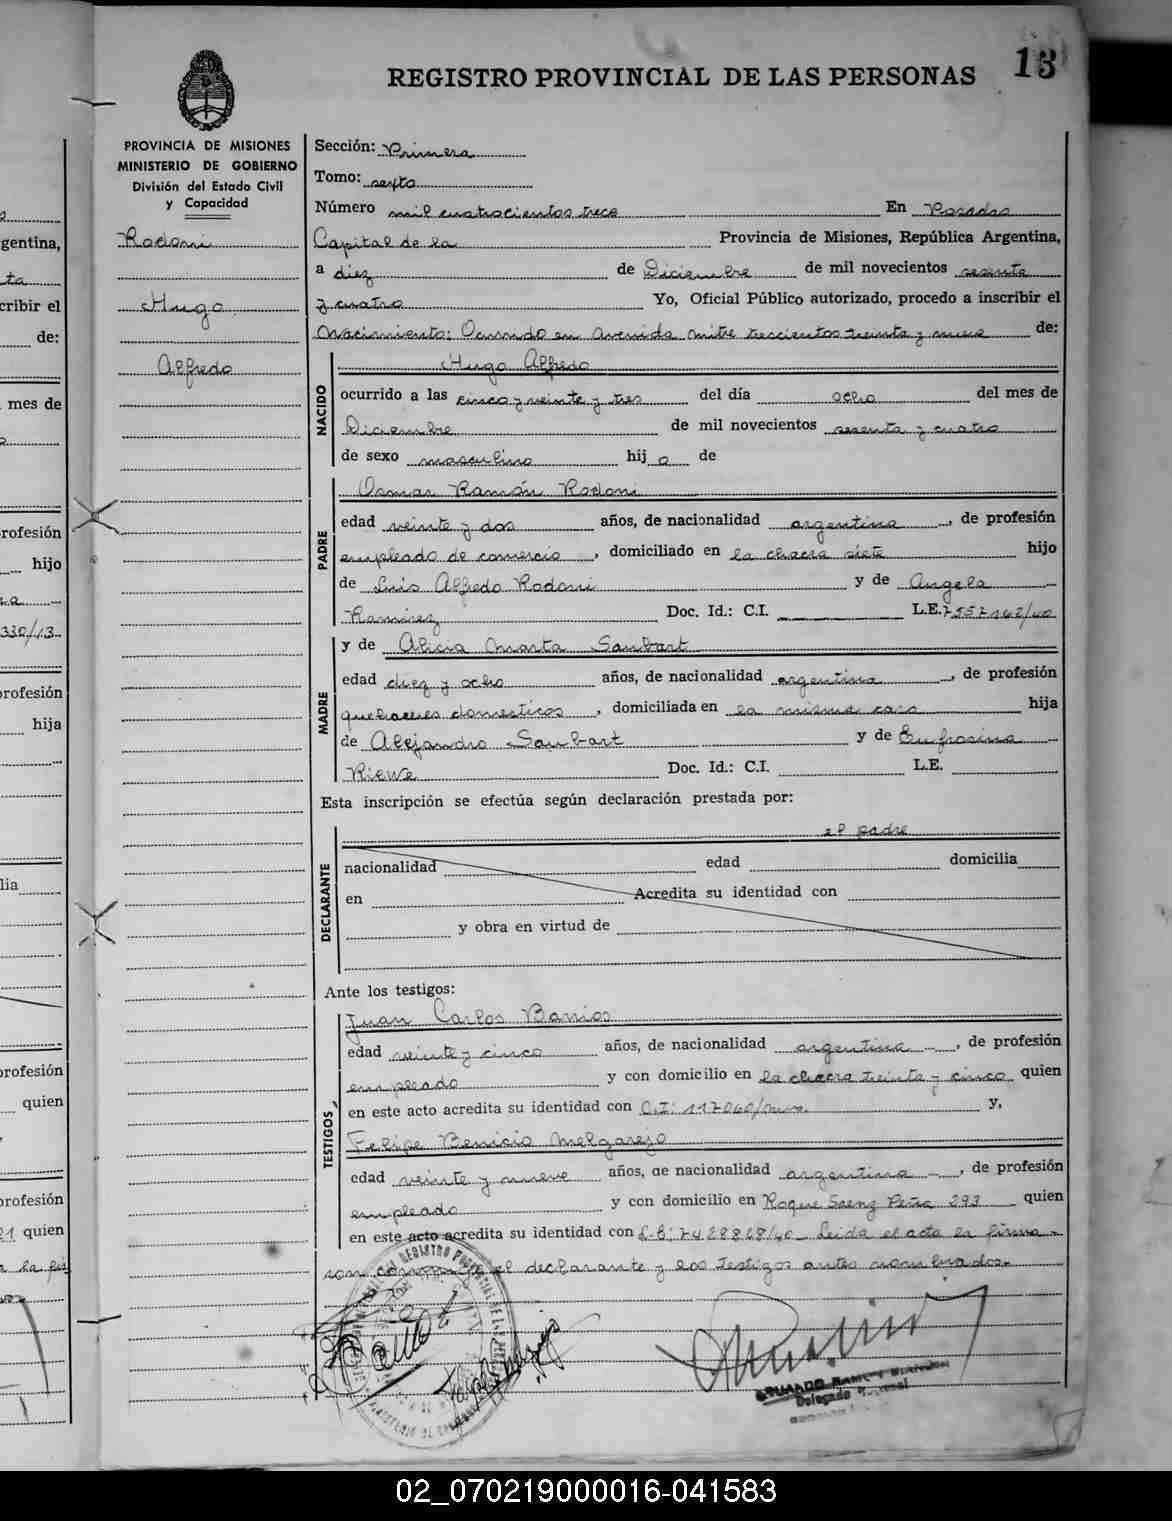 REGISTRO PROVINCIAL DE LAS PERSONAS 13
PROVINCIA DE MISIONES
MINISTERIO DE GOBIERNO
División del Estado Civil
y Capacidad
Rodoni
Hugo
Alfredo
Sección: Primera
Tomo: sexto
Número mil cuatrocientos trece En Posadas
Capital de la Provincia de Misiones, República Argentina,
a diez de Diciembre de mil novecientos sesenta
y cuatro Yo, Oficial Público autorizado, procedo a inscribir el
Nacimiento: Ocurrido en avenida mitre trescientos treinta y nueve de:
NACIDO
Hugo Alfredo
ocurrido a las cinco y veinte y tres del día ocho del mes de
Diciembre de mil novecientos sesenta y cuatro
de sexo masculino hij o de
PADRE
Osmar Ramón Rodoni
edad veinte y dos años, de nacionalidad argentina, de profesión
empleado de comercio, domiciliado en la chacra siete hijo
de Luis Alfredo Rodoni y de Angela
Ramirez Doc. Id.: C.I. L.E. 7557162/40
y de Alicia Marta Saubart
MADRE
edad diez y ocho años, de nacionalidad argentina, de profesión
quehaceres domesticos, domiciliada en la misma casa hija
de Alejandro Saubart y de Eufrosina
Riewe Doc. Id.: C.I. L.E.
Esta inscripción se efectúa según declaración prestada por:
el padre
DECLARANTE
nacionalidad edad domicilia
en Acredita su identidad con
y obra en virtud de
Ante los testigos:
TESTIGOS
Juan Carlos Barrios
edad veinte y cinco años, de nacionalidad argentina, de profesión
empleado y con domicilio en la chacra treinta y cinco quien
en este acto acredita su identidad con C.I: 117060/mns. y,
Felipe Benicio Melgarejo
edad veinte y nueve años, de nacionalidad argentina, de profesión
empleado y con domicilio en Roque Saenz Peña 293 quien
en este acto acredita su identidad con L-E: 7428828/40 Leida el acta la firma-
son conmigo el declarante y los testigos antes nombrados.
02_070219000016-041583